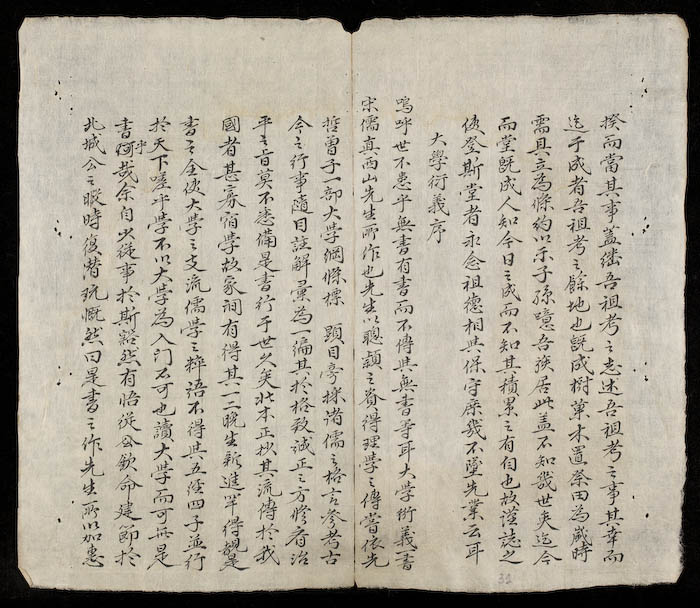 揆而當其事蓋继吾祖考之志述吾祖考之事其幸而
迄于成者吾祖考之餘地也旣成樹草木置祭田為歲時
需具立為條約以示子孫噫吾族居此蓋不知幾世矣迄今
而堂旣成人知今日之成而不知其積累之有自也故謹誌之
後登斯堂者永念祖德相與保守庶幾不墜先業云耳
大學衍義序
嗚呼世不患乎無書有書而不傳與無書等耳大学衍義書
宋儒真西山先生所作也先生以聰穎之資得理學之傳嘗依先
哲曾子一部大學綱條標 顯目旁採诸儒之格言參考古
今之行事隨目註解彙為一編其於格致誠正之方修齊治
平之旨莫不悉備是書行于世久矣北本正抄其流傳於我
國者甚寡宿學故家间有得其一二晚生新進罕得覩是
書之全使大學之支流儒學之粹語不得與五經四子並行
於天下嗟乎學不以大學為入门不可也讀大學而可無是
書乎哉余自少從事於斯豁然有悟從公欽命建節於
北城公之暇時復潜玩慨然曰是書之作先生所以加惠
32